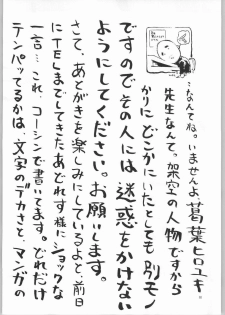 …なんてね。いませんよ葛葉ヒロユキ
先生なんて。架空の人物ですから
かりにどこかにいたとしても別モノ
ですのでその人には迷惑をかけない
ようにしてください。お願いします。
さて、あとがきを楽しみにしているよと、前日
にTELまでしてきたあどれす様にショックな
一言…これ、コーシンで書いてます。どれだけ
テンパッてるかは、文字のデカさと、マンガの